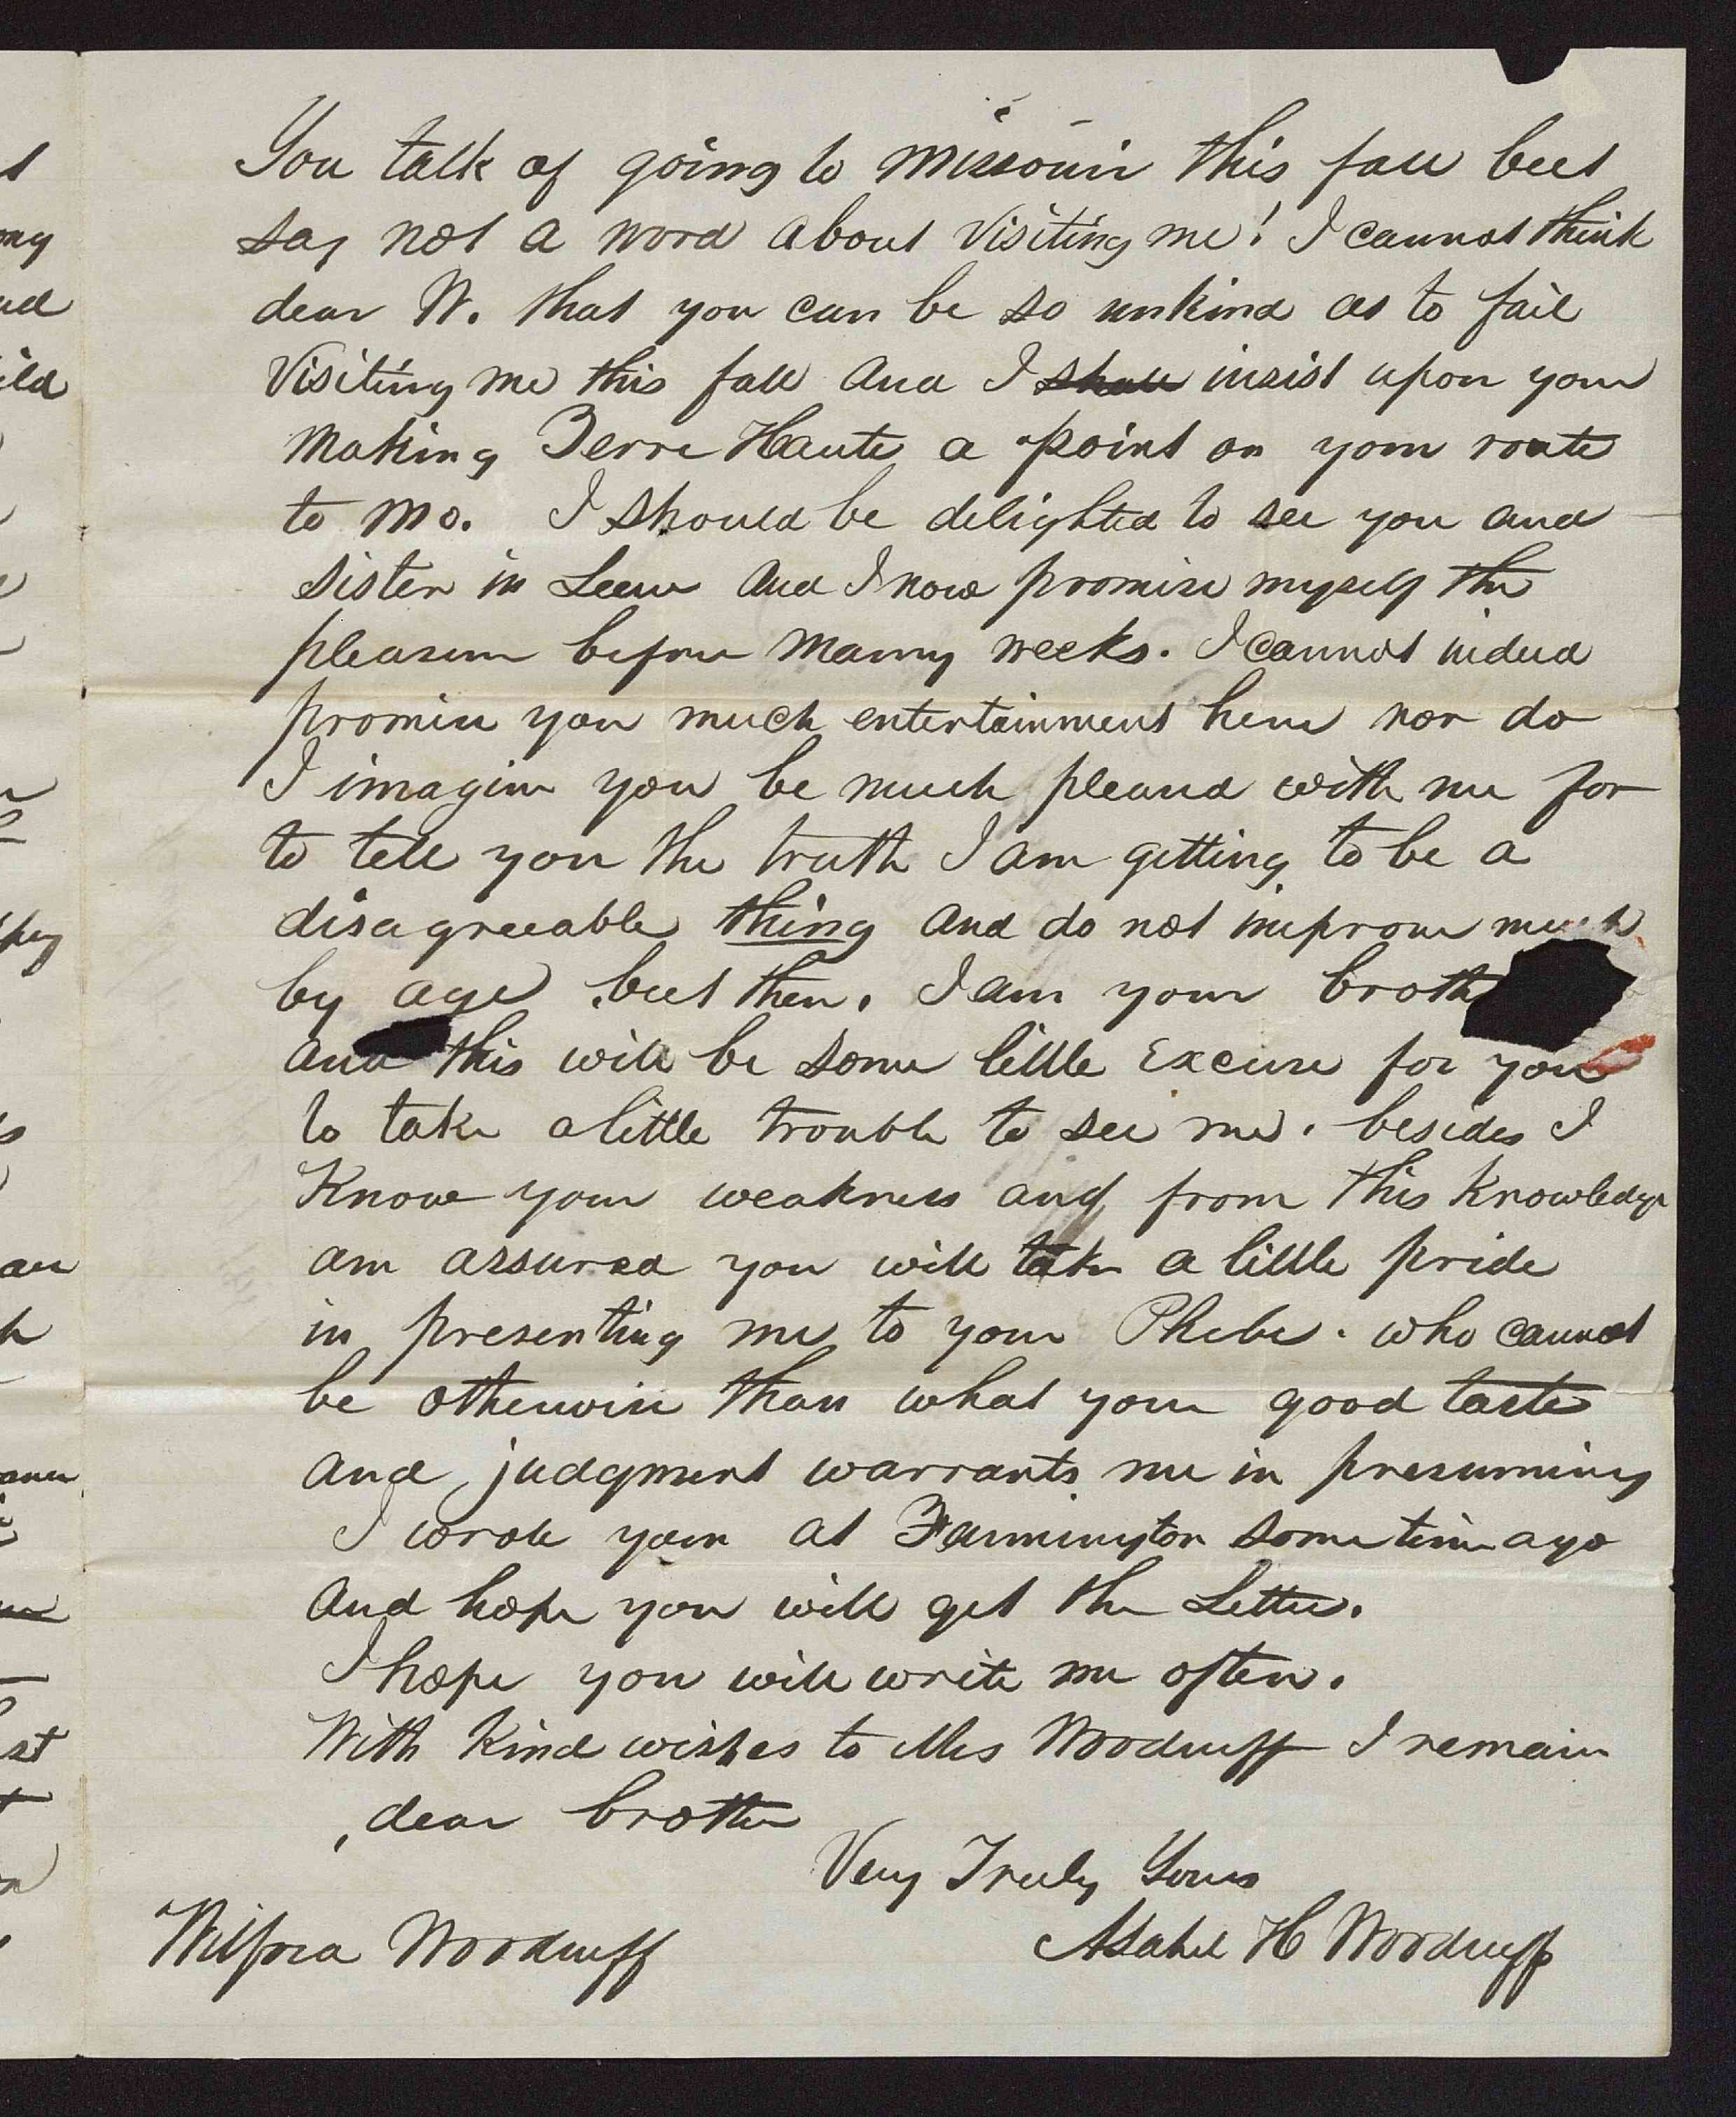 You talk of going to Missouri this fall but
say not a word about visiting me! I cannot think
dear W. that you can be so unkind as to fail
visiting me this fall and I shall insist upon your
making Terre Haute a point on your route
to Mo. I should be delighted to see you and
sister in Leeuw and I now promise myself the
pleasure before many weeks. I cannot indeed
promise you much entertainment here nor do
I imagine you be much pleased with me for
to tell you the truth I am getting to be a
disagreeable thing and do not improve much
by age but then, I am your broth
and this will be some little excuse for you
to take a little trouble to see me. besides I
Know your weakness and from this Knowledge
am assured you will take a little pride
in presenting me to your Phebe. who cannot
be otherwise than what your good taste
and judgment warrants me in presuming
I wrote you at Farmington some time ago
and hope you will get the Letter.
I hope you will write me often.
With Kind wishes to Mrs Woodruff I remain
dear brother
Very Truly Yours
Wilford Woodruff
Asahel H Woodruff